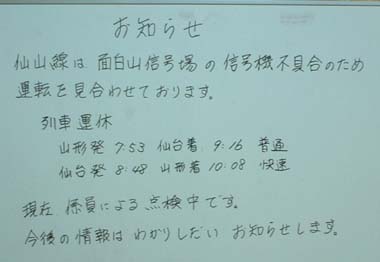 お知らせ
仙山線は 面白山信号場の 信号機不具合のため
運転を見合わせております。
列車運休
山形発 7:53 仙台着 9:16 普通
仙台発 8:48 山形着 10:08 快速
現在 係員による点検中です。
今後の情報は わかりしだい お知らせします。